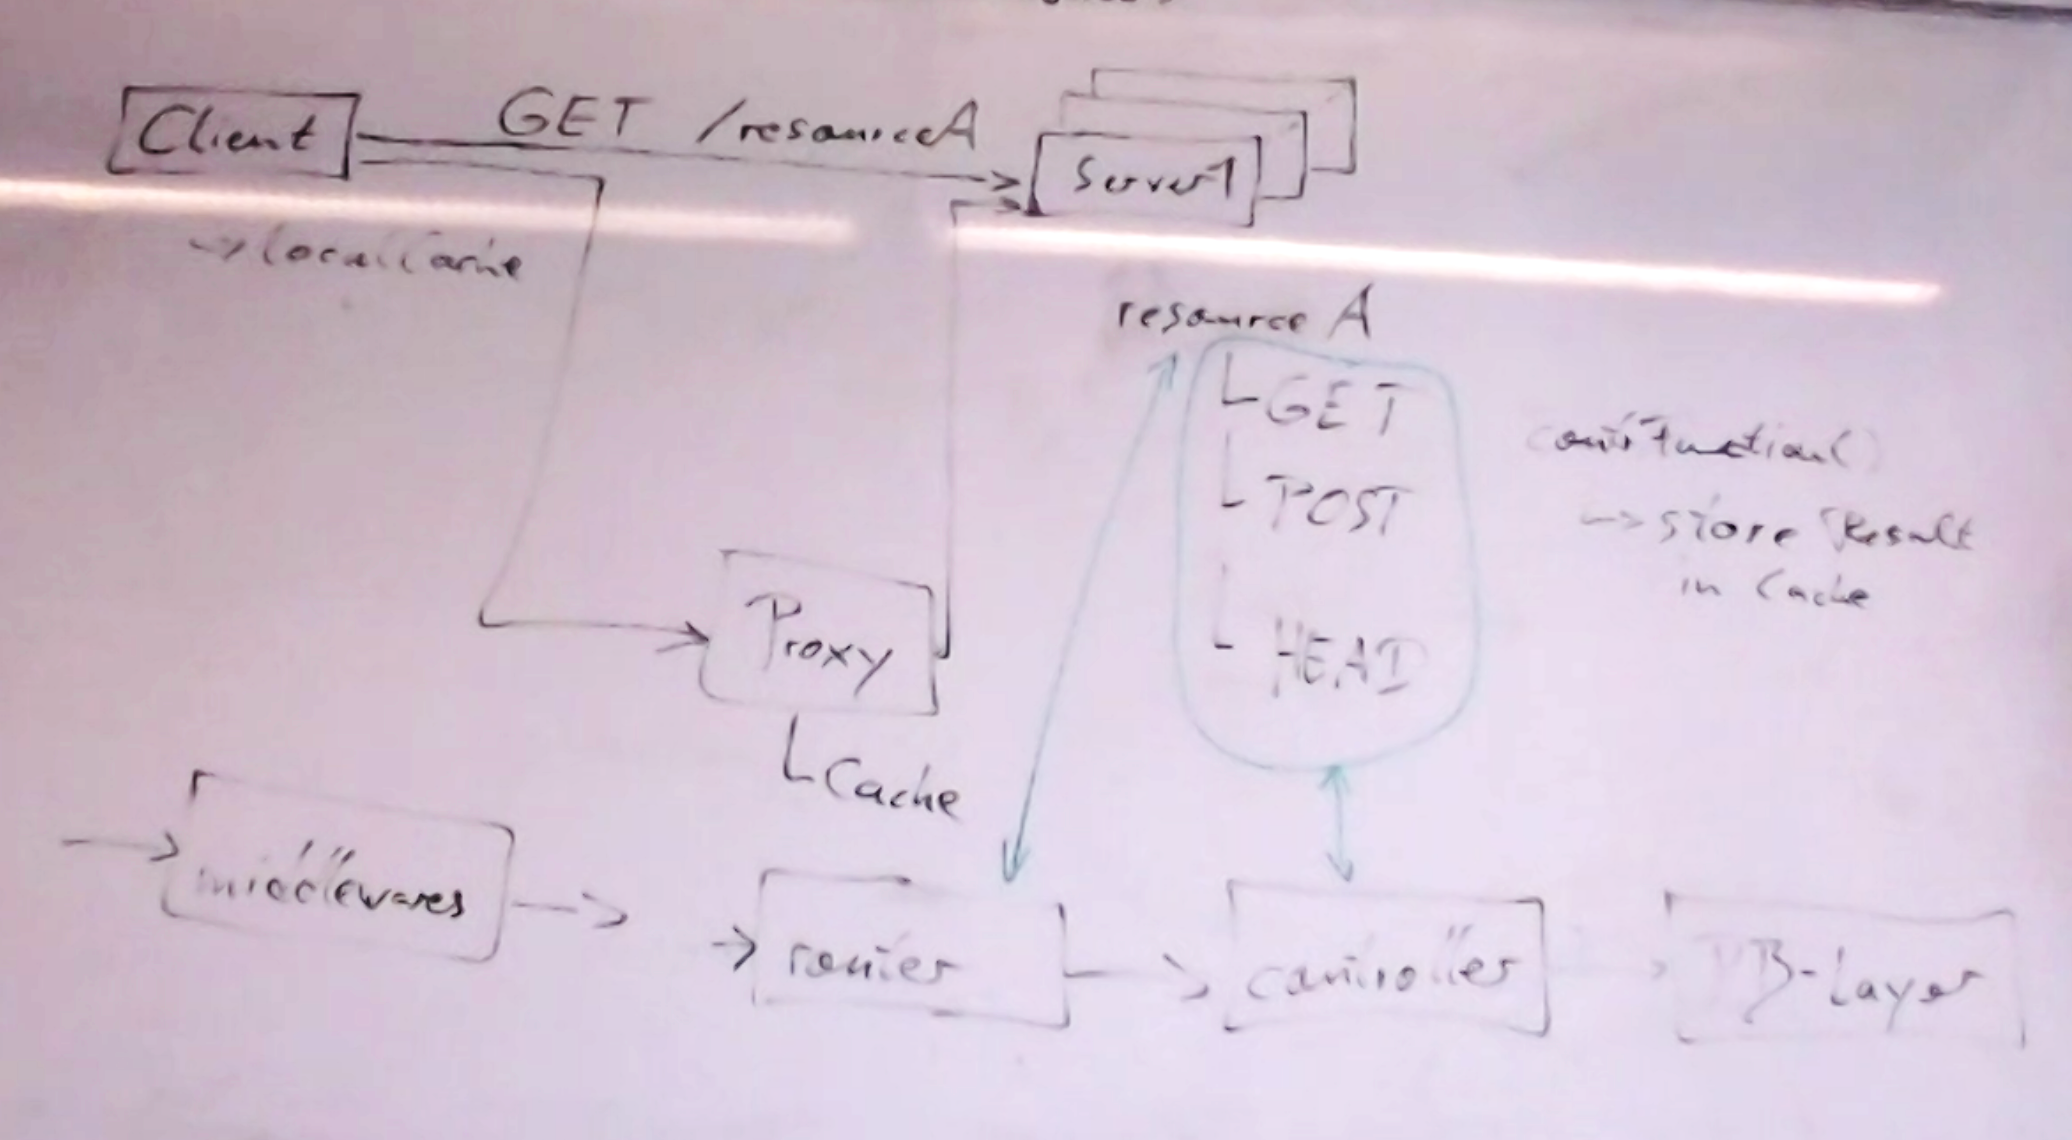 Client
GET /resourceA
Server1
-> local Cache
resource A
GET
POST
HEAD
-> store Result
in Cache
Proxy
Cache
middlewares
router
controller
DB-Layer